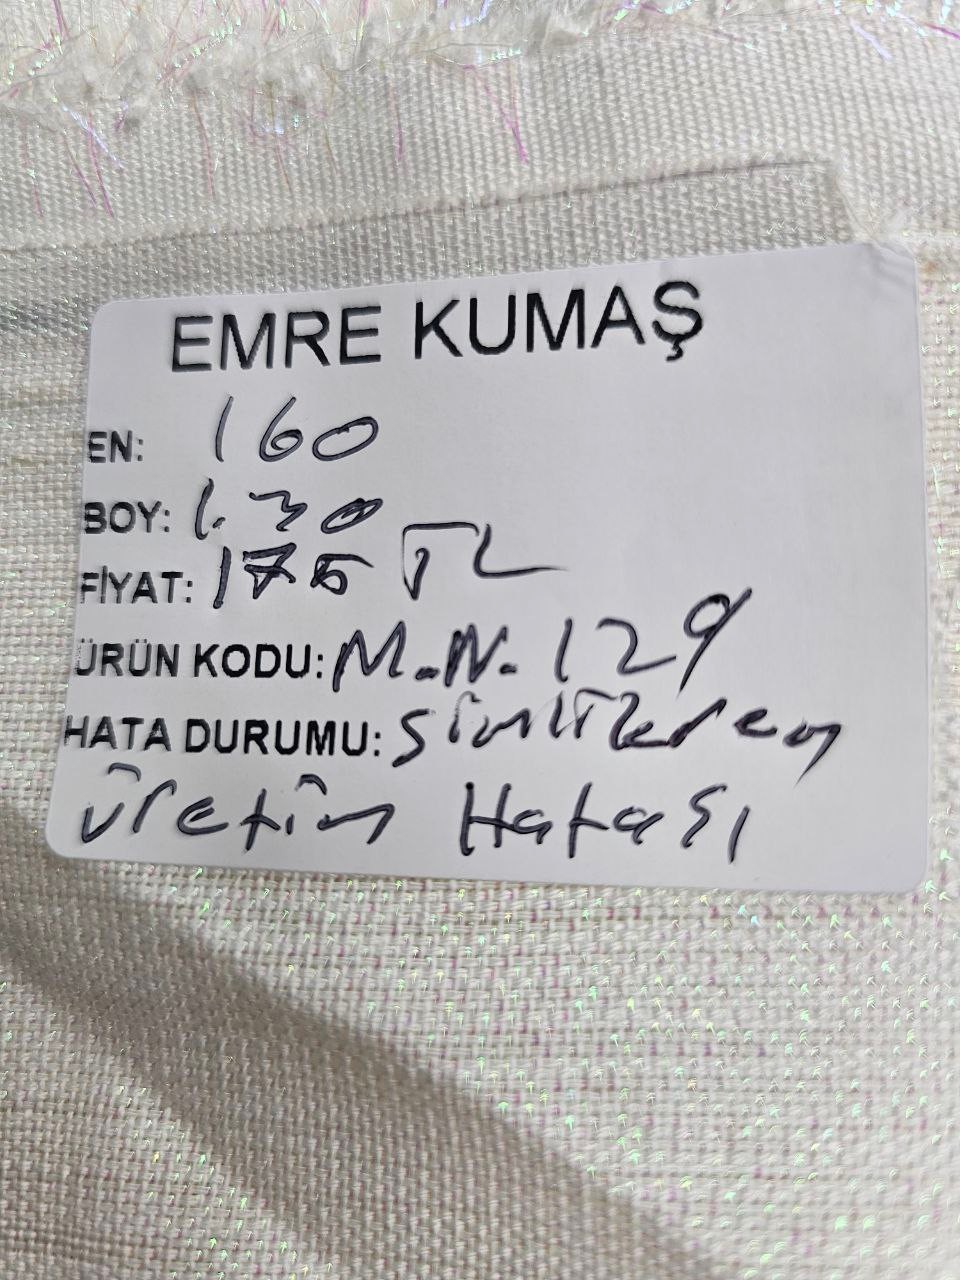 EMRE KUMAŞ
EN: 160
BOY: 1.30
FİYAT: 175 TL
ÜRÜN KODU: M.N. 129
HATA DURUMU:
üretim Hatası